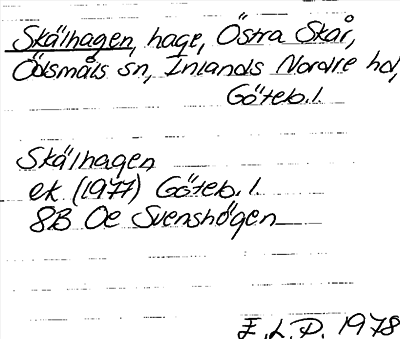 Skälhagen, hage, Östra Skår,
Ödsmåls sn, Inlands Nordre hd,
Göteb. l.
Skälhagen
ek (1977) Göteb. l.
8B Oe Svenshögen
E.L.P. 1978